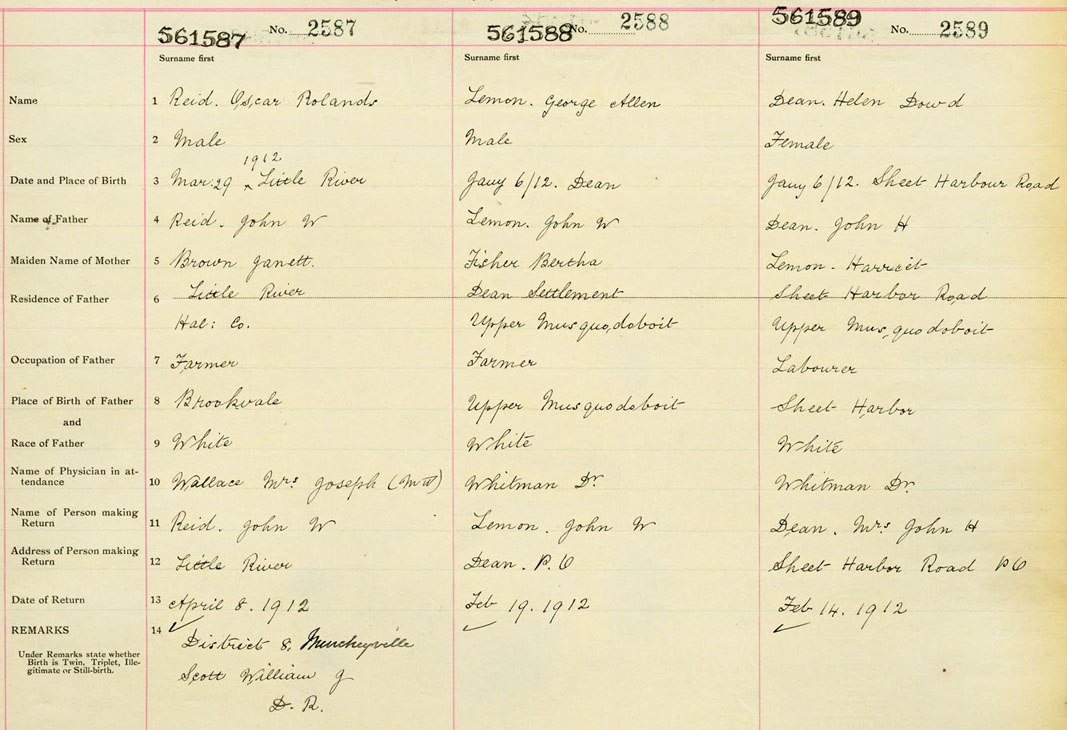 561587 No. 2587 561588 No. 2588 561589 No. 2589
Surname first Surname first Surname first
Name 1 Reid. Oscar Rolands Lemon. George Allen Dean. Helen Dowd
Sex 2 Male Male Female
1912
Date and Place of Birth 3 Mar: 29 ^ Little River Jany 6/12. Dean Jany 6/12. Sheet Harbour Road
Name of Father 4 Reid. John W Lemon. John W Dean. John H
Maiden Name of Mother 5 Brown Janett. Fisher Bertha Lemon. Harriet
Residence of Father 6 Little River Dean Settlement Sheet Harbor Road
Hal: Co. Upper Musquodoboit Upper Musquodoboit
Occupation of Father 7 Farmer Farmer Labourer
Place of Birth of Father 8 Brookvale Upper Musquodoboit Sheet Harbor
and
Race of Father 9 White White White
Name of Physician in at-
tendance 10 Wallace Mrs Joseph (MW) Whitman Dr. Whitman Dr.
Name of Person making
Return 11 Reid. John W Lemon. John W Dean. Mrs John H
Address of Person making
Return 12 Little River Dean. P.O Sheet Harbor Road PO
Date of Return 13 April 8. 1912 Feb 19. 1912 Feb 14. 1912
REMARKS 14
Under Remarks state whether
Birth is Twin, Triplet, Ille-
gitimate or Still-birth.
District 8,
Scott William J
D. R.